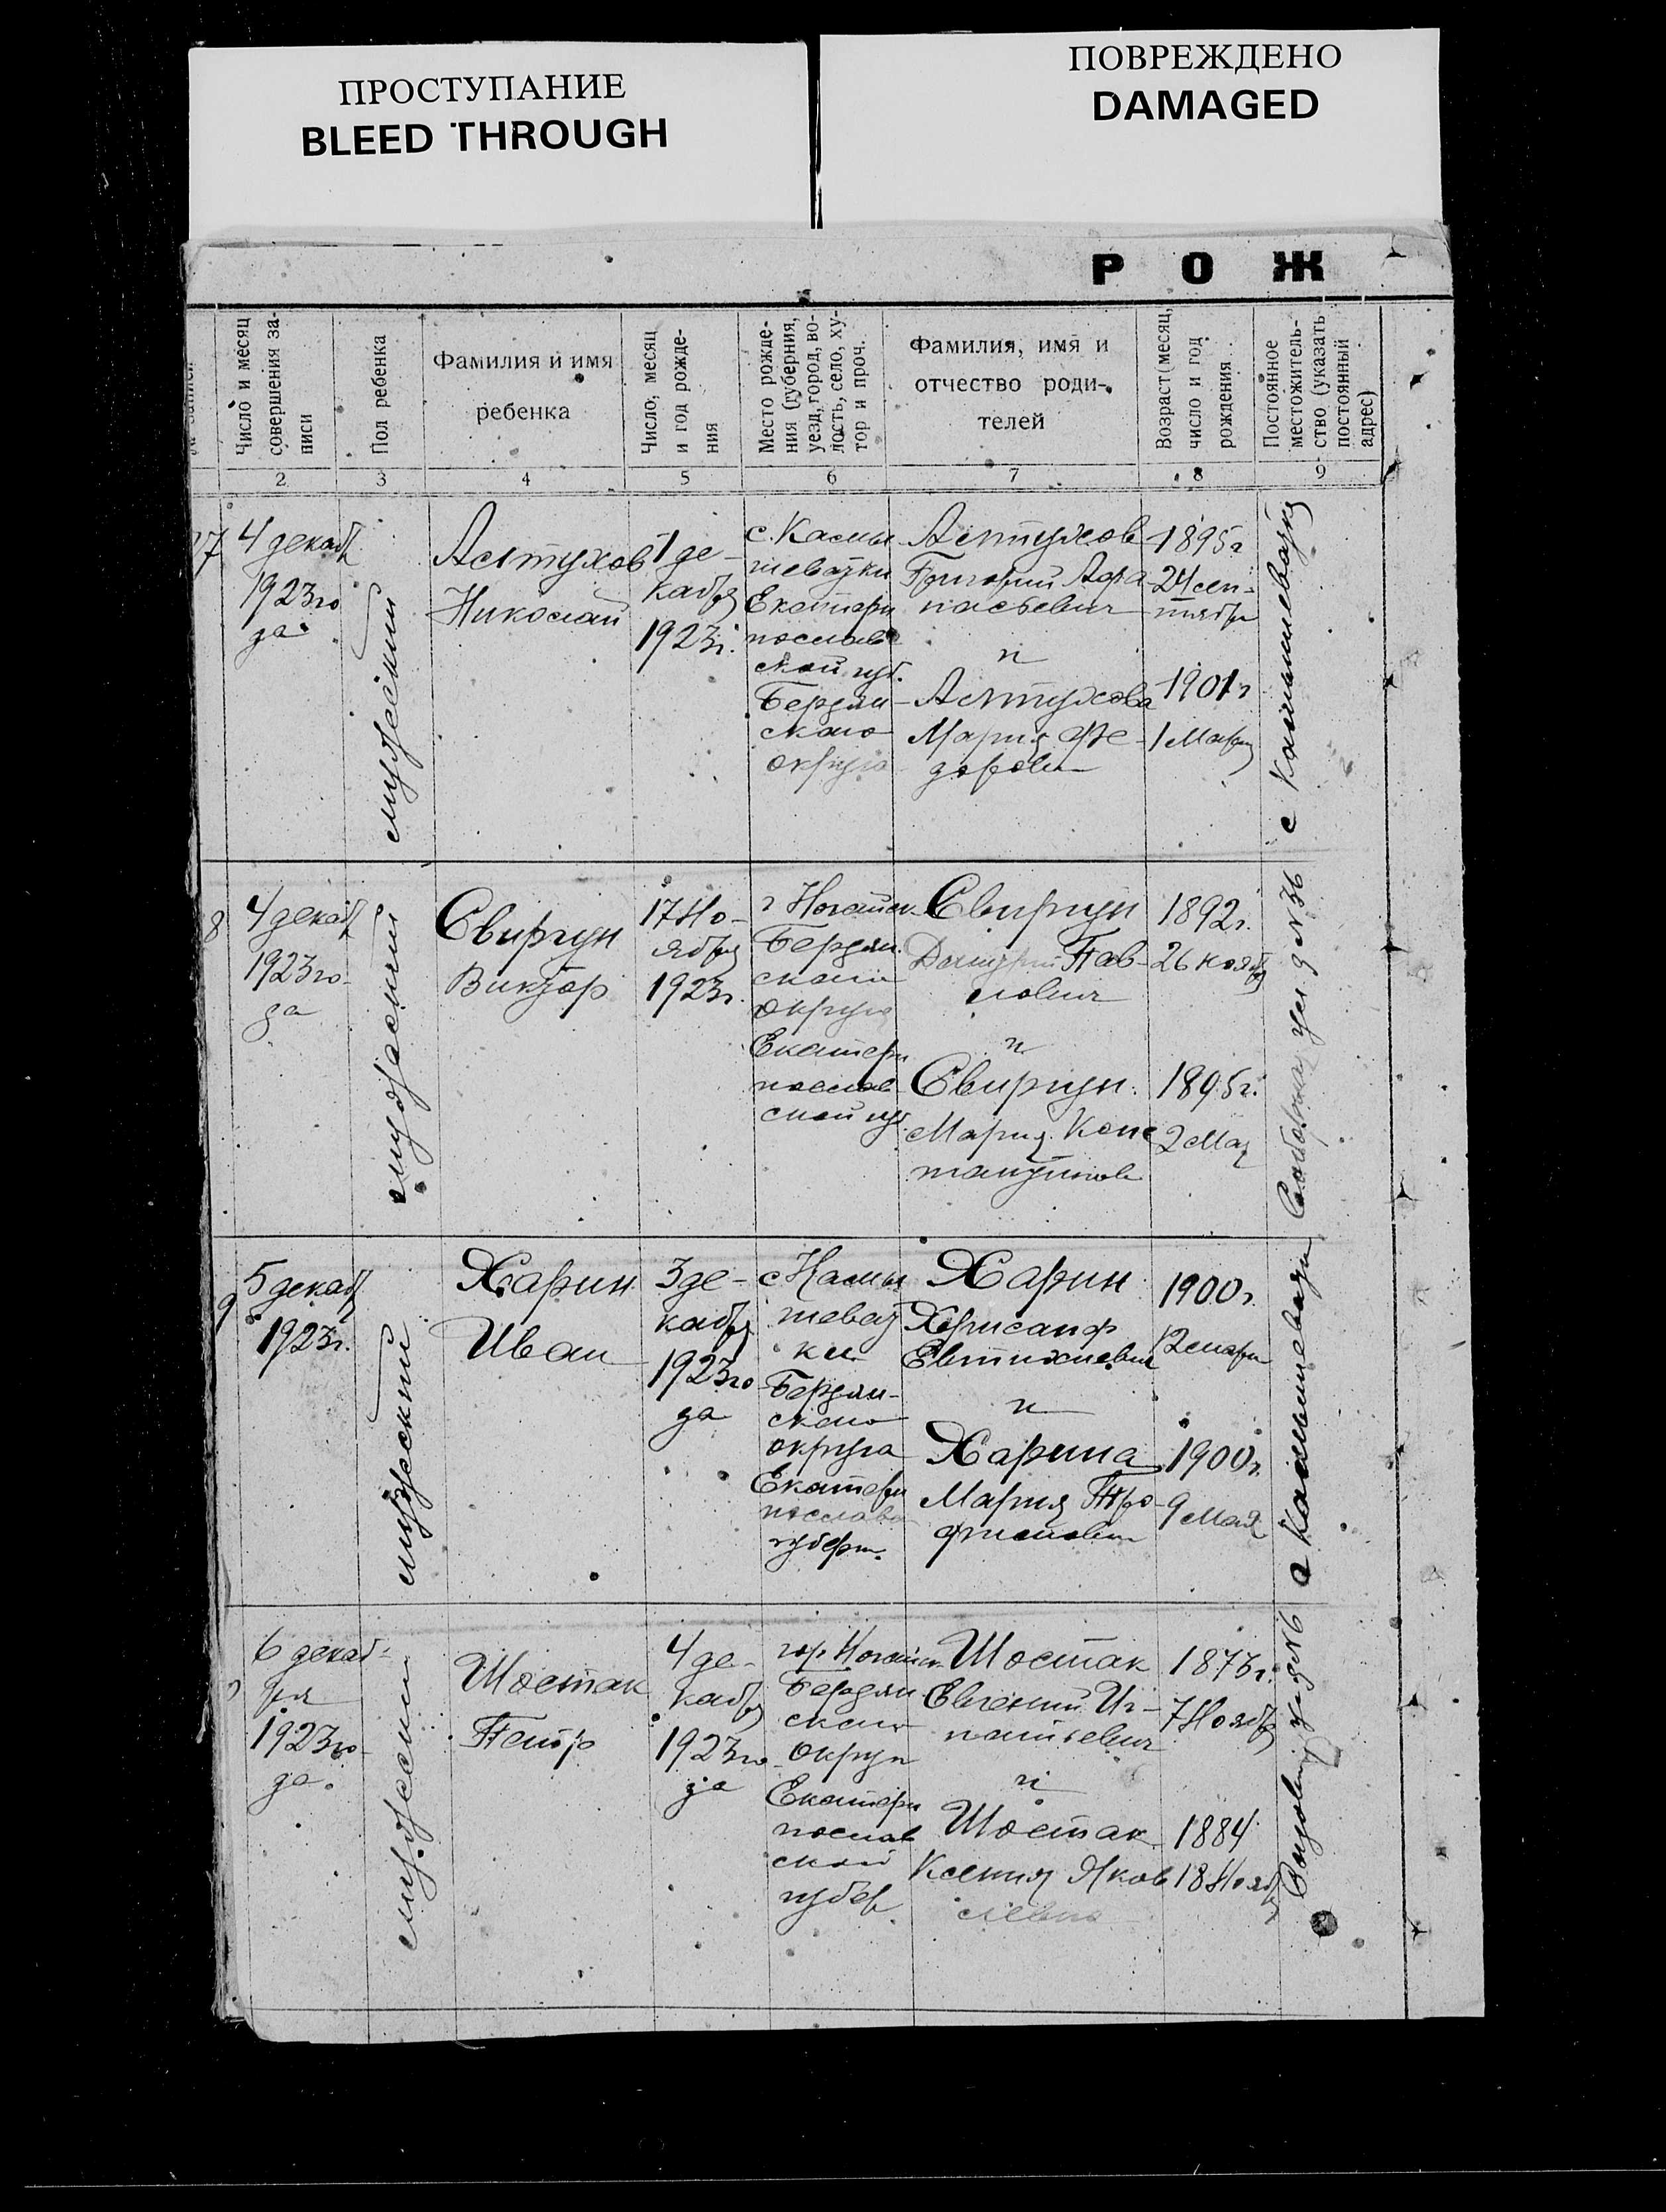 ПРОСТУПАНИЕ
BLEED THROUGH
ПОВРЕЖДЕНО
DAMAGED
Р О Ж
Число и месяц
совершения за-
писи
Пол ребенка
Фамилия и имя
ребенка
Число, месяц
и год рожде-
ния
Место рожде-
ния (губерния,
уезд, город, во-
лость, село, ху-
тор и проч.
Фамилия, имя и
отчество роди-
телей
Возраст (месяц,
число и год
рождения
Постоянное
местожитель-
ство (указать
постоянный
адрес)
2 3 4 5 6 7 8 9
7
4 декаб
1923 го
да
мужеский
Астухов
Николай
1 де-
кабря
1923 г.
с. Камы
шеватки
Екатери
нослав
ской губ.
Бердян
ского
округа
Астухов
Григорий Афа
насьевич
и
Астухова
Мария Фе-
доровн
1895 г
24 сен-
тября
1901 г
1 Март
с Камышеватка
8
4 декаб
1923 го-
да
мужеский
Свиргун
Виктор
17 Но-
ября
1923 г.
г Ногайск
Бердян
ского
округа
Екатери
нослав
ской губ
Свиргун
Дмитрий Пав-
лович
и
Свиргун
Мария Конс
тантинов
1892 г.
26 нояб
1895 г.
2 Мая
Соборная ул д N 36
9
5 декаб
1923 г.
мужеский
Харин
Иван
3 де-
кабря
1923 го
да
с Камы
шеват
ки
Бердян-
ского
округа
Екатери
нослав
губерн.
Харин
Хрисанф
Евтихиевич
и
Харина
Мария Тро-
фимовн
1900 г.
1900 г.
9 Мая
с Камышеватки
6 декаб-
ря
1923 го-
да.
мужеский
Шостак
Петр
4 де-
кабря
1923 го
да
гор Ногайск
Бердян
ского
округа
Екатери
нослав
ской
губер
Шостак
Евгений Иг-
натьевич
и
Шостак
Ксения Яков
левна
1873 г.
7 Нояб
1884
18 Нояб